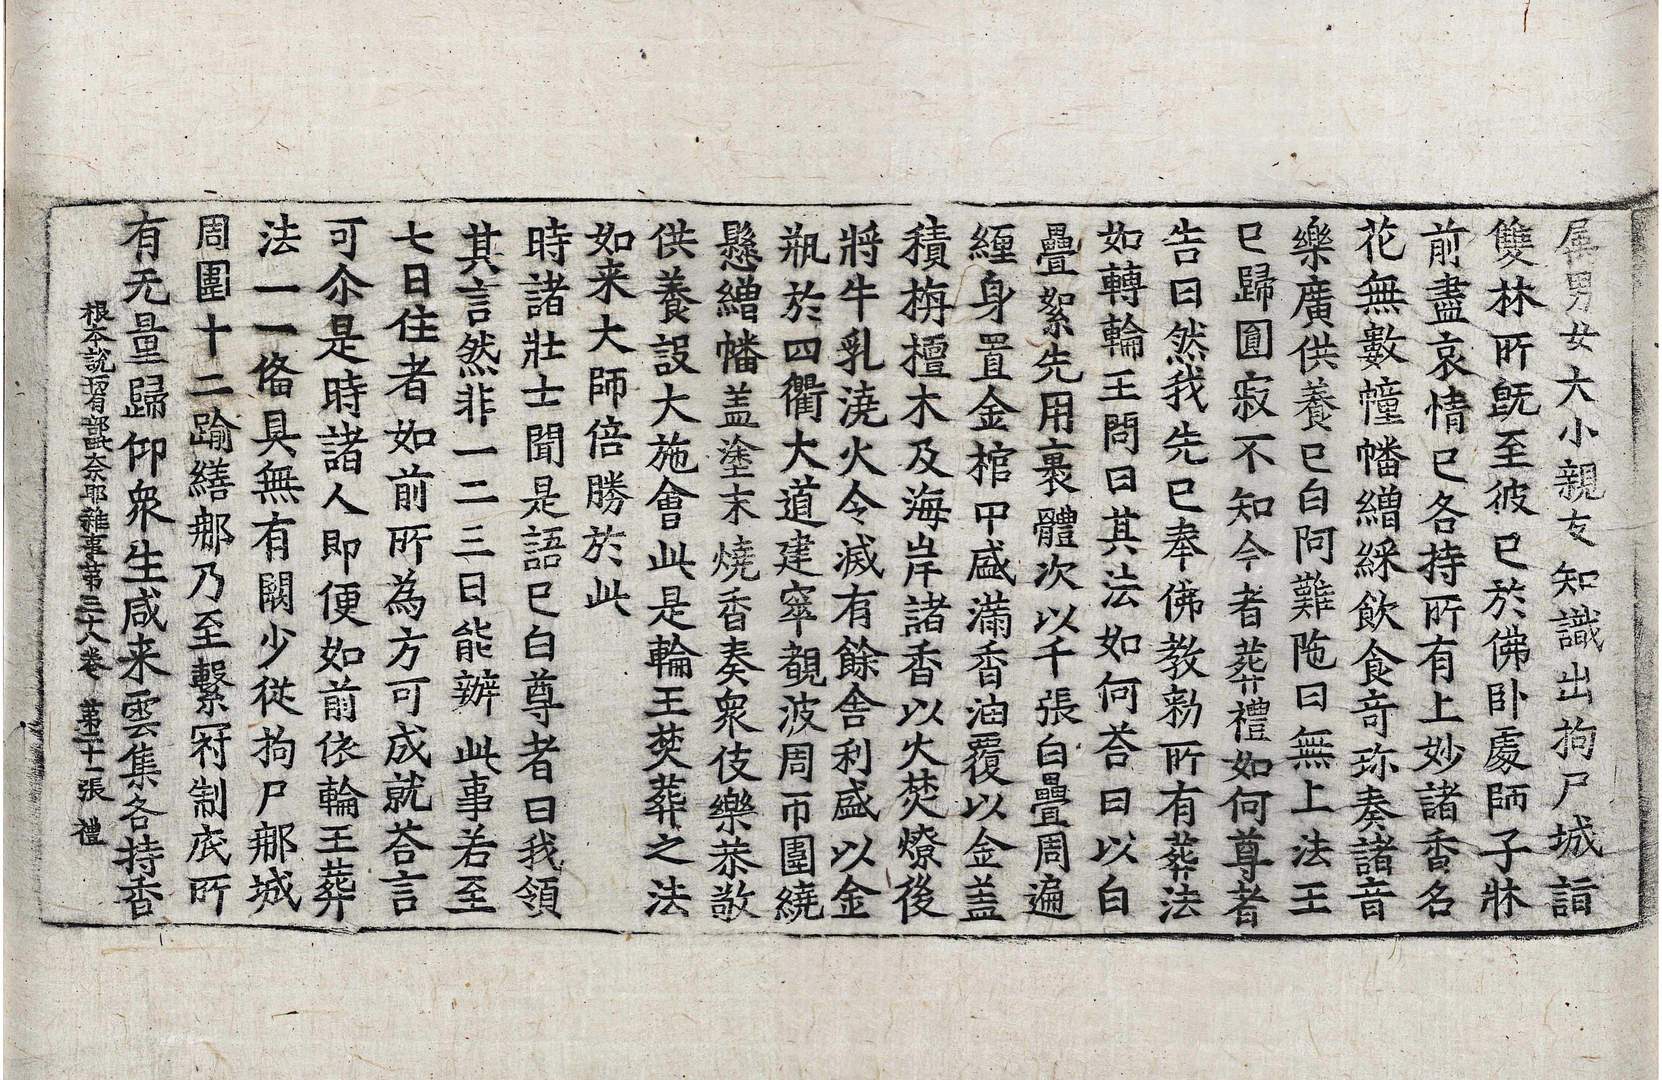 属男女大小親友知識出拘尸城詣
雙林所既至彼已於佛卧處師子牀
前盡哀情已各持所有上妙諸香名
花無數幢幡繒綵飲食竒珎奏諸音
樂廣供養已白阿難陁曰無上法王
已歸圓寂不知今者葬禮如何尊者
告曰然我先已奉佛教勑所有葬法
如轉輪王問曰其法如何荅曰以白
疊絮先用裹體次以千張白疊周遍
纒身置金棺中盛滿香油覆以金盖
積栴檀木及海岸諸香以火焚燎後
將牛乳澆火令滅有餘舍利盛以金
瓶於四衢大道建窣覩波周帀圍繞
懸繒幡盖塗末燒香奏衆伎樂恭敬
供養設大施會此是輪王焚葬之法
如来大師倍勝於此
時諸壯士聞是語已白尊者曰我領
其言然非一二三日能辦此事若至
七日住者如前所為方可成就荅言
可尒是時諸人即便如前依輪王葬
法一一俻具無有闕少從拘尸那城
周圍十二踰繕那乃至繫冠制底所
有无量歸仰衆生咸来雲集各持香
根本說一切有部毗奈耶雜事第三十八卷 第二十一張 禮